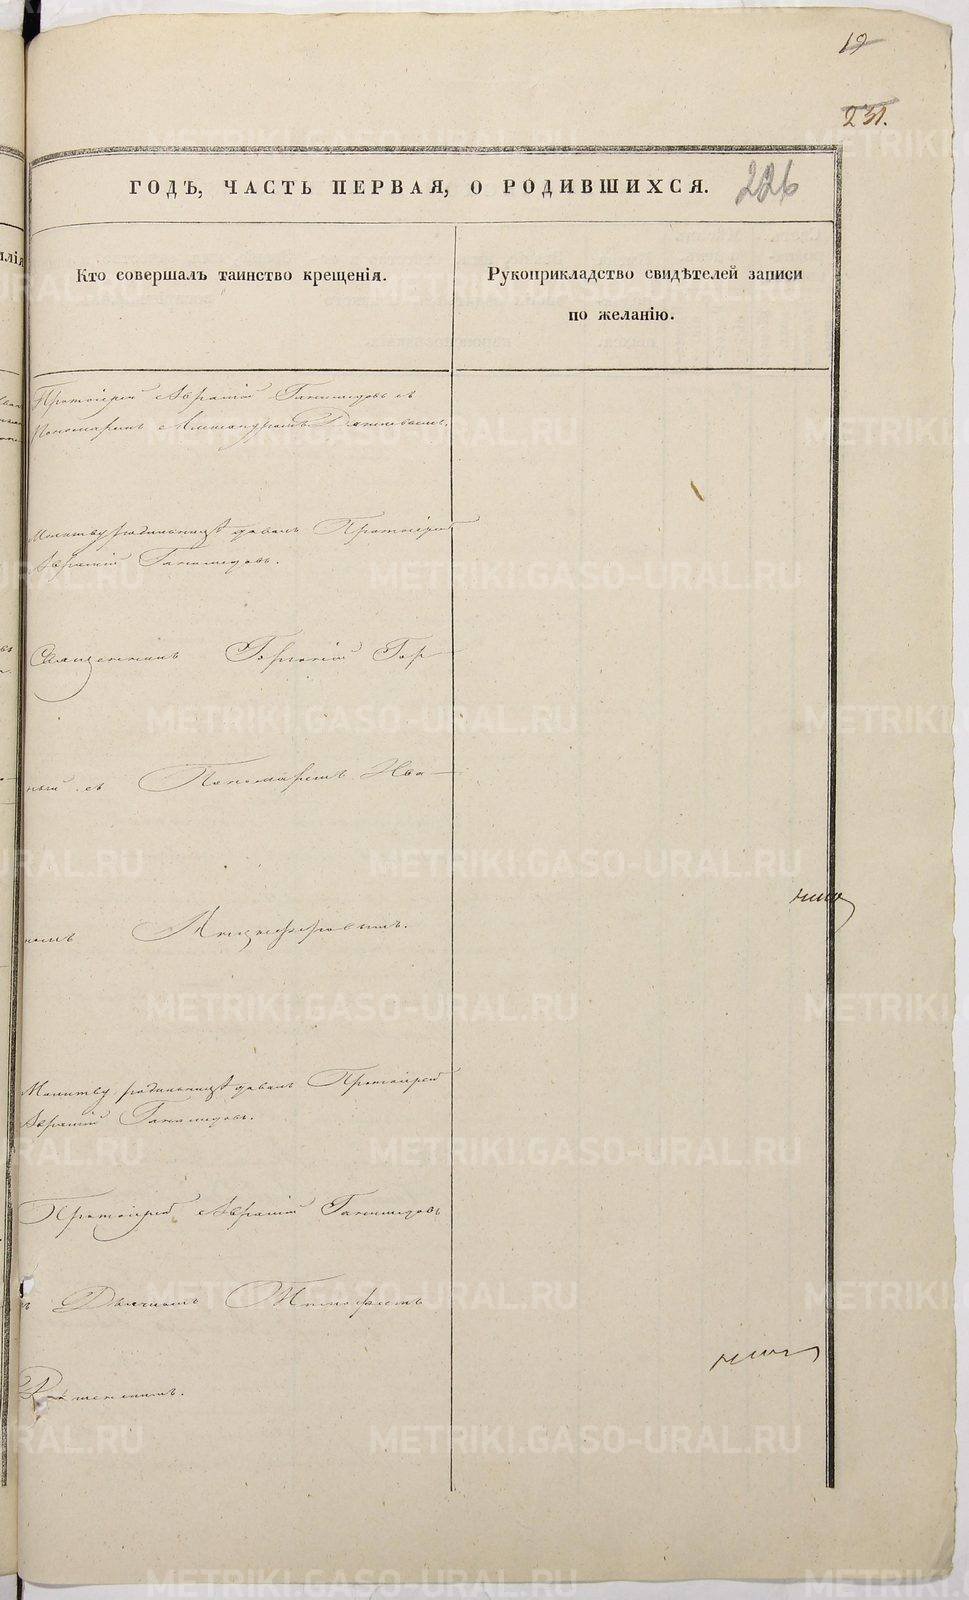 19
231.
ГОДЪ, ЧАСТЬ ПЕРВАЯ, О РОДИВШИХСЯ. 226
Кто совершалъ таинство крещенія.
Рукоприкладство свидѣтелей записи
по желанію.
Протоіерей Авраамій Ганимедовъ съ
Пономаремъ Александромъ
Молитву родильницѣ давалъ Протоіерей
Авраамій Ганимедовъ.
Священникъ Горгоній Гор
ный съ Пономаремъ Ива
номъ
Молитву родильницѣ давалъ Протоіерей
Авраамій Ганимедовъ.
Протоіерей Авраамій Ганимедовъ
съ Дьячкомъ
METRIKI.GASO-URAL.RU